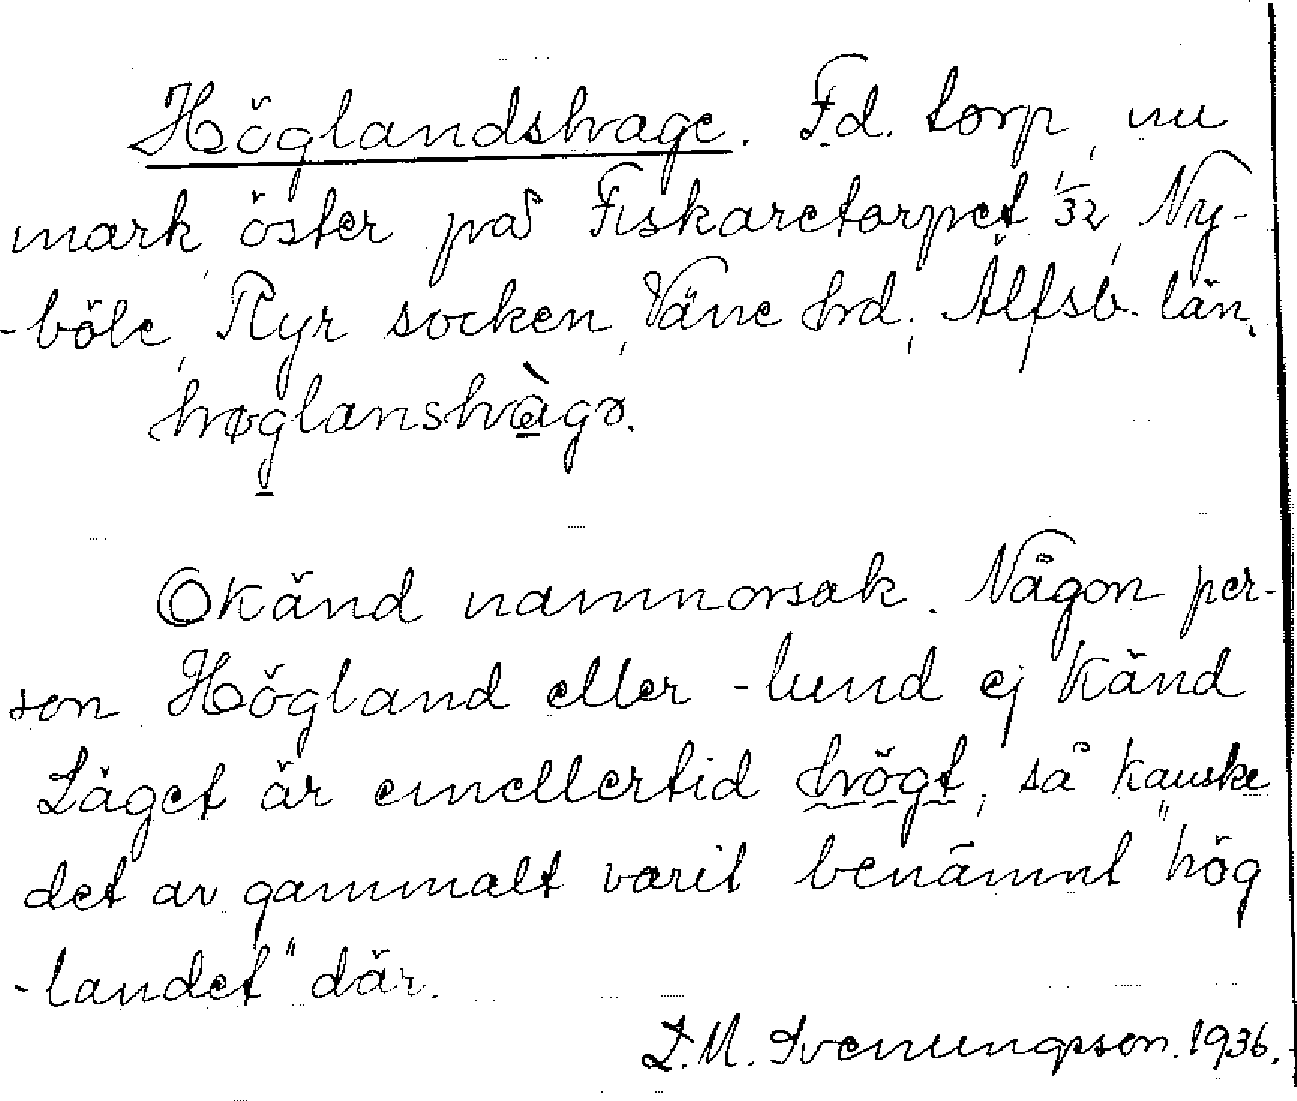 Höglandshage. Fd. torp, nu
mark, öster på Fiskaretorpet 1/32, Ny-
-böle, Ryr socken, Väne hrd, Älfsb. län.
høglanshàgə.
Okänd namnorsak. Någon per-
son Högland eller -lund ej känd
Läget är emellertid högt, så kanske
det av gammalt varit benämnt "hög
-landet" där.
L.M. Svenungsson. 1936.